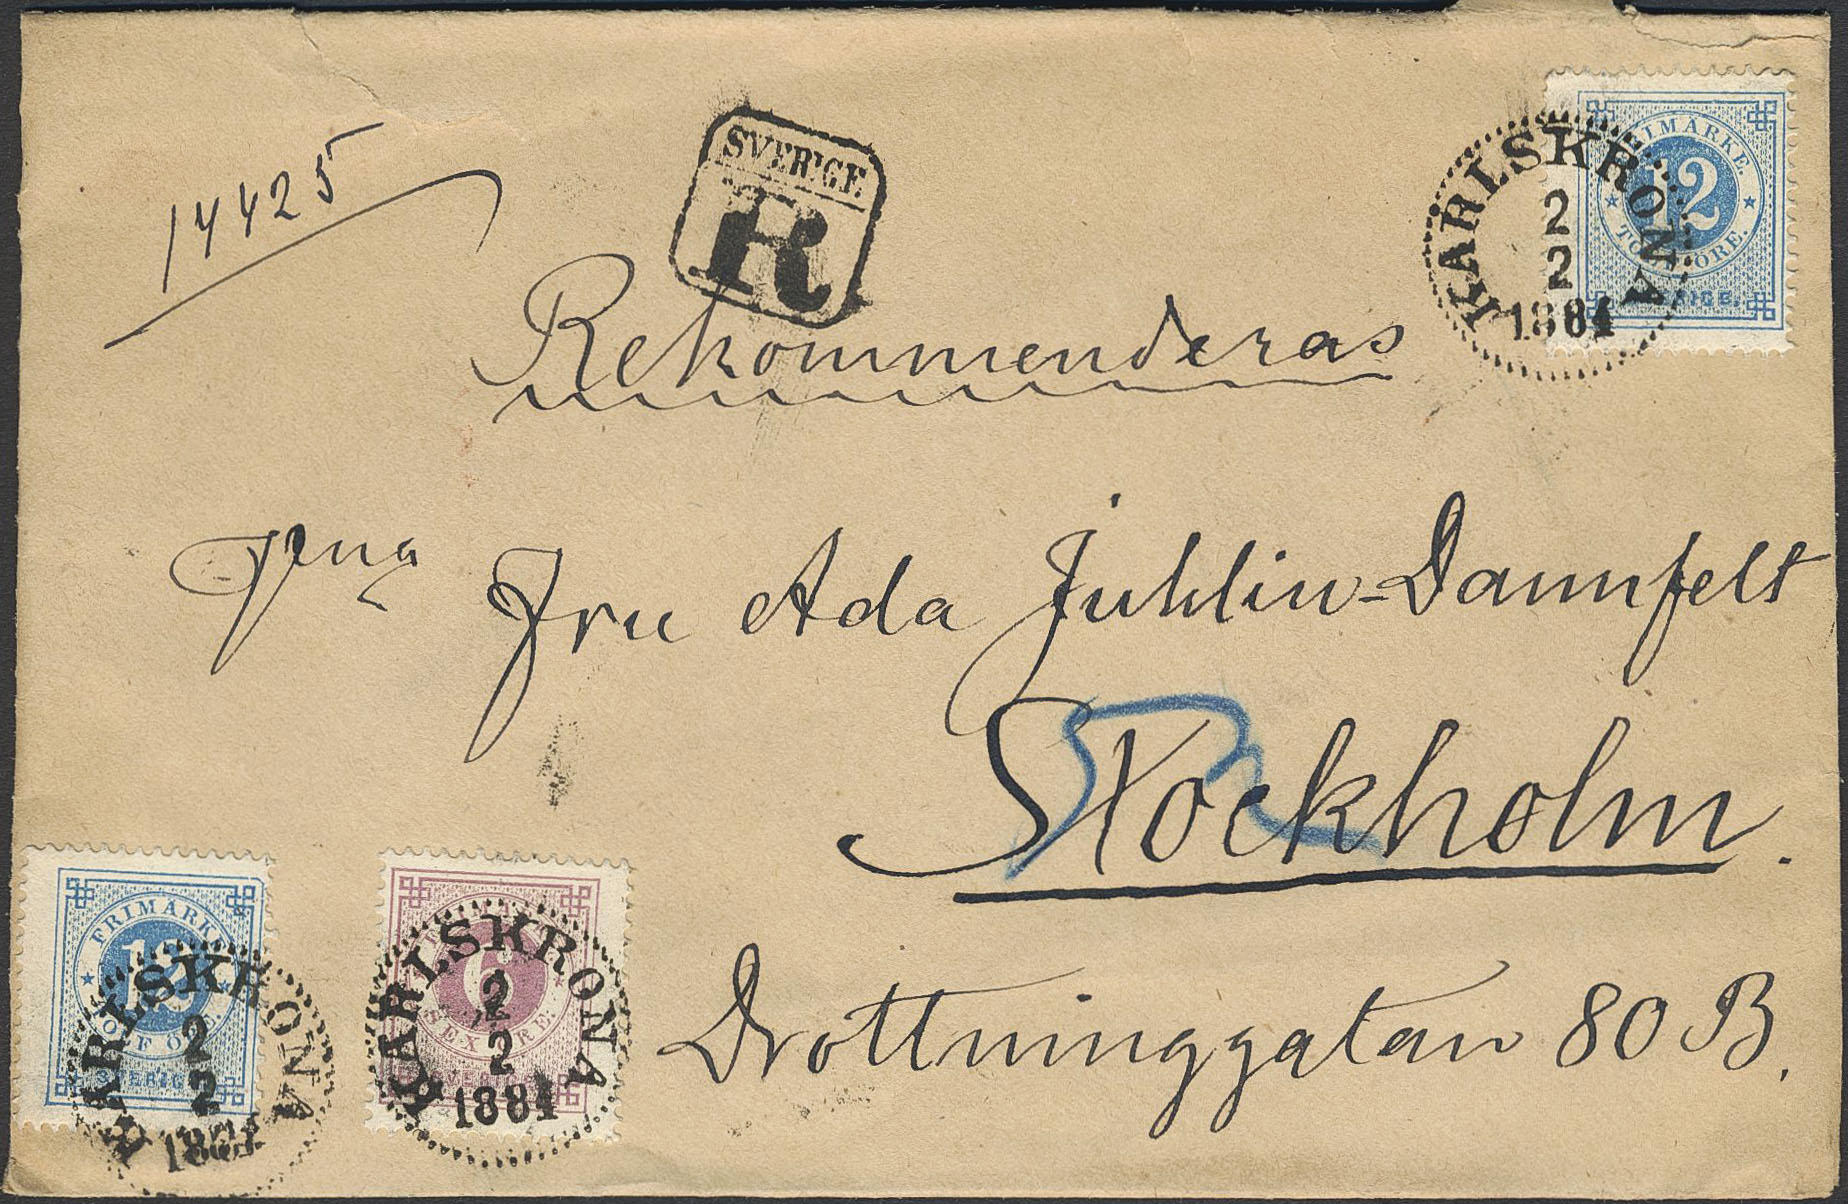 14425
SVERIGE
R
FRIMÄRKE.
12
TOLF ÖRE.
SVERIGE.
KARLSKRONA
2
2
1884
Rekommenderas
Fru Ada Juhlin-Dannfelt
Stockholm.
Drottninggatan 80 B.
FRIMÄRKE
12
TOLF ÖRE.
SVERIGE
KARLSKRONA
2
2
1884
FRIMÄRKE
6
SEX ÖRE.
SVERIGE
KARLSKRONA
2
2
1884